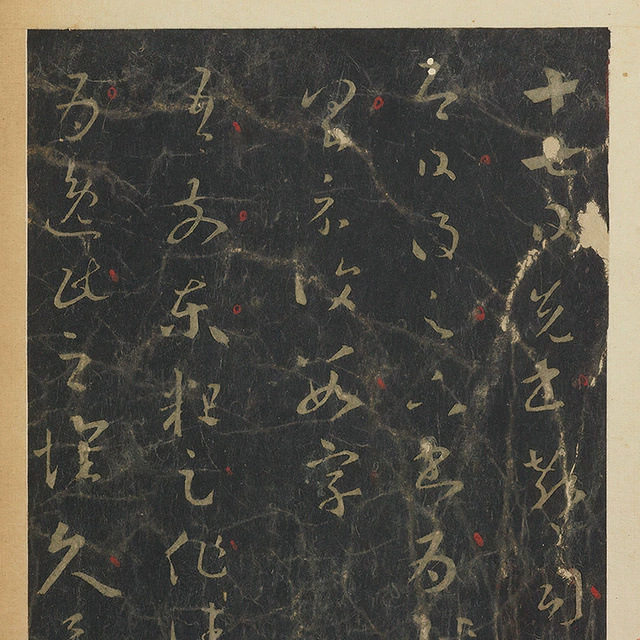 十七日先書郗司
即日得足下書為
以具示復數字
吾前東粗足作佳
為逸民之懷久